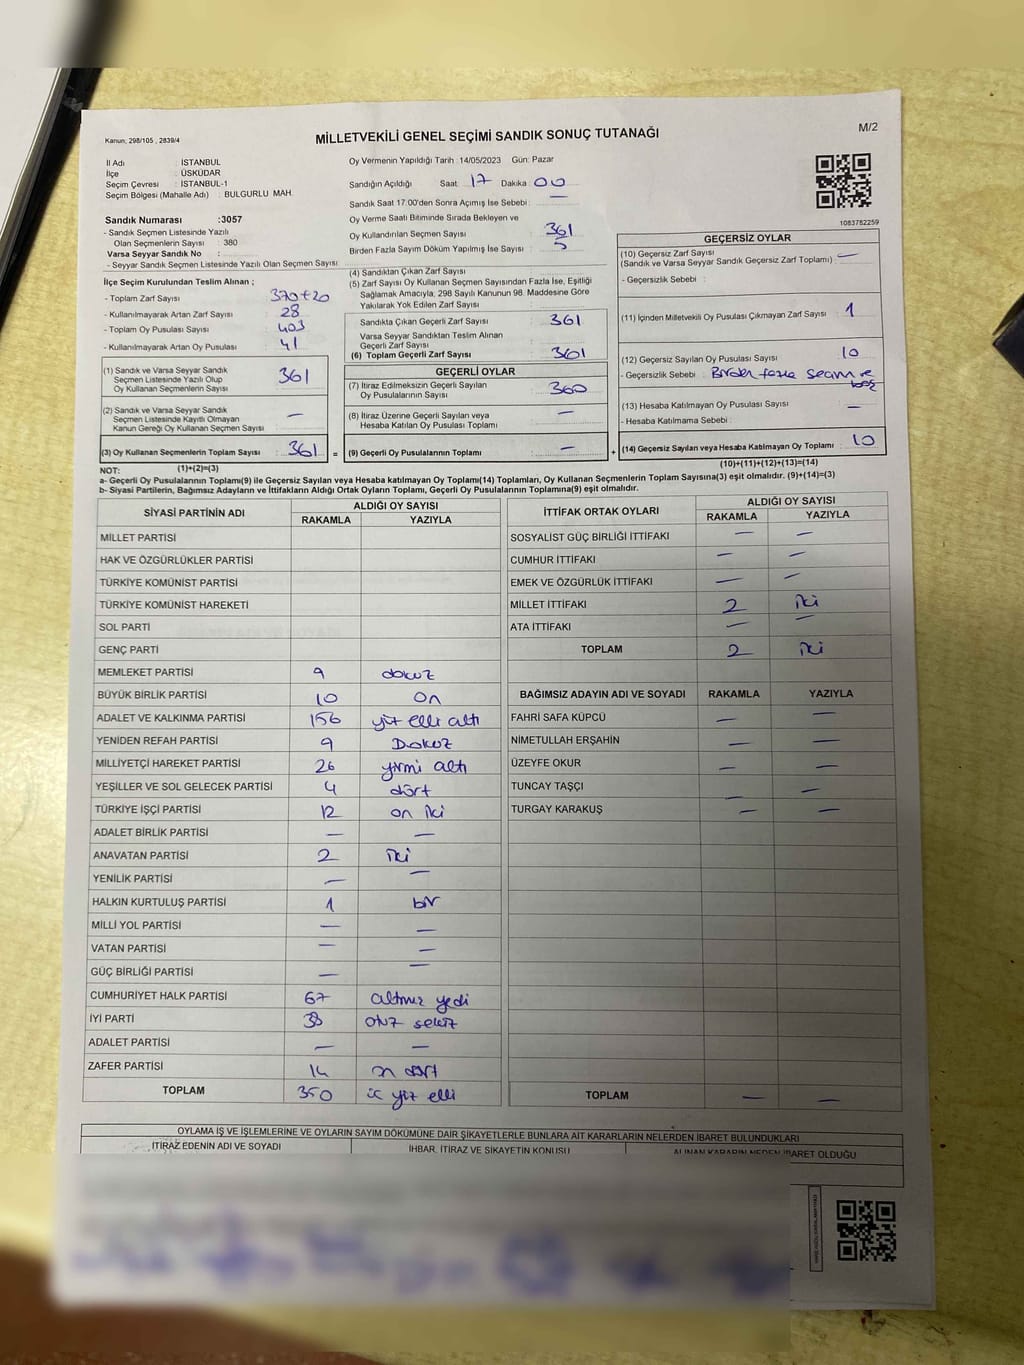 Kanun; 298/105 , 2839/4
MİLLETVEKİLİ GENEL SEÇİMİ SANDIK SONUÇ TUTANAĞI
M/2
İl Adı : İSTANBUL
İlçe : ÜSKÜDAR
Seçim Çevresi : İSTANBUL-1
Seçim Bölgesi (Mahalle Adı) : BULGURLU MAH.
Sandık Numarası :3057
- Sandık Seçmen Listesinde Yazılı
Olan Seçmenlerin Sayısı : 380
Varsa Seyyar Sandık No :
- Seyyar Sandık Seçmen Listesinde Yazılı Olan Seçmen Sayısı :
Oy Vermenin Yapıldığı Tarih :14/05/2023 Gün: Pazar
Sandığın Açıldığı Saat :17 Dakika :00
Sandık Saat 17:00'den Sonra Açımış İse Sebebi : —
Oy Verme Saati Bitiminde Sırada Bekleyen ve
Oy Kullandırılan Seçmen Sayısı : 361
Birden Fazla Sayım Döküm Yapılmış İse Sayısı : 5
1083782259
İlçe Seçim Kurulundan Teslim Alınan ;
- Toplam Zarf Sayısı : 370+20
- Kullanılmayarak Artan Zarf Sayısı : 28
- Toplam Oy Pusulası Sayısı : 403
- Kullanılmayarak Artan Oy Pusulası : 41
(1) Sandık ve Varsa Seyyar Sandık
Seçmen Listesinde Yazılı Olup
Oy Kullanan Seçmenlerin Sayısı : 361
(2) Sandık ve Varsa Seyyar Sandık
Seçmen Listesinde Kayıtlı Olmayan
Kanun Gereği Oy Kullanan Seçmen Sayısı : —
(3) Oy Kullanan Seçmenlerin Toplam Sayısı : 361 =
(1)+(2)=(3)
(4) Sandıktan Çıkan Zarf Sayısı :
(5) Zarf Sayısı Oy Kullanan Seçmen Sayısından Fazla İse, Eşitliği
Sağlamak Amacıyla, 298 Sayılı Kanunun 98. Maddesine Göre
Yakılarak Yok Edilen Zarf Sayısı :
Sandıkta Çıkan Geçerli Zarf Sayısı : 361
Varsa Seyyar Sandıktan Teslim Alınan
Geçerli Zarf Sayısı :
(6) Toplam Geçerli Zarf Sayısı : 361
GEÇERLİ OYLAR
(7) İtiraz Edilmeksizin Geçerli Sayılan
Oy Pusulalarının Sayısı : 360
(8) İtiraz Üzerine Geçerli Sayılan veya
Hesaba Katılan Oy Pusulası Toplamı : —
(9) Geçerli Oy Pusulalarının Toplamı : — +
GEÇERSİZ OYLAR
(10) Geçersiz Zarf Sayısı
(Sandık ve Varsa Seyyar Sandık Geçersiz Zarf Toplamı) : —
- Geçersizlik Sebebi :
(11) İçinden Milletvekili Oy Pusulası Çıkmayan Zarf Sayısı : 1
(12) Geçersiz Sayılan Oy Pusulası Sayısı : 10
- Geçersizlik Sebebi : Birden fazla seçim ve
boş
(13) Hesaba Katılmayan Oy Pusulası Sayısı : —
- Hesaba Katılmama Sebebi :
(14) Geçersiz Sayılan veya Hesaba Katılmayan Oy Toplamı : 10
(10)+(11)+(12)+(13)=(14)
NOT:
a- Geçerli Oy Pusulalarının Toplamı(9) ile Geçersiz Sayılan veya Hesaba katılmayan Oy Toplamı(14) Toplamları, Oy Kullanan Seçmenlerin Toplam Sayısına(3) eşit olmalıdır. (9)+(14)=(3)
b- Siyasi Partilerin, Bağımsız Adayların ve İttifakların Aldığı Ortak Oyların Toplamı, Geçerli Oy Pusulalarının Toplamına(9) eşit olmalıdır.
SİYASİ PARTİNİN ADI ALDIĞI OY SAYISI
RAKAMLA YAZIYLA
MİLLET PARTİSİ
HAK VE ÖZGÜRLÜKLER PARTİSİ
TÜRKİYE KOMÜNİST PARTİSİ
TÜRKİYE KOMÜNİST HAREKETİ
SOL PARTİ
GENÇ PARTİ
MEMLEKET PARTİSİ 9 dokuz
BÜYÜK BİRLİK PARTİSİ 10 On
ADALET VE KALKINMA PARTİSİ 156 yüz elli altı
YENİDEN REFAH PARTİSİ 9 Dokuz
MİLLİYETÇİ HAREKET PARTİSİ 26 yirmi altı
YEŞİLLER VE SOL GELECEK PARTİSİ 4 dört
TÜRKİYE İŞÇİ PARTİSİ 12 on iki
ADALET BİRLİK PARTİSİ — —
ANAVATAN PARTİSİ 2 iki
YENİLİK PARTİSİ — —
HALKIN KURTULUŞ PARTİSİ 1 bir
MİLLİ YOL PARTİSİ — —
VATAN PARTİSİ — —
GÜÇ BİRLİĞİ PARTİSİ — —
CUMHURİYET HALK PARTİSİ 67 altmış yedi
İYİ PARTİ 38 otuz sekiz
ADALET PARTİSİ — —
ZAFER PARTİSİ 14 on dört
TOPLAM 350 üç yüz elli
İTTİFAK ORTAK OYLARI ALDIĞI OY SAYISI
RAKAMLA YAZIYLA
SOSYALİST GÜÇ BİRLİĞİ İTTİFAKI — —
CUMHUR İTTİFAKI — —
EMEK VE ÖZGÜRLÜK İTTİFAKI — —
MİLLET İTTİFAKI 2 iki
ATA İTTİFAKI — —
TOPLAM 2 iki
BAĞIMSIZ ADAYIN ADI VE SOYADI RAKAMLA YAZIYLA
FAHRİ SAFA KÜPCÜ — —
NİMETULLAH ERŞAHİN — —
ÜZEYFE OKUR — —
TUNCAY TAŞÇI — —
TURGAY KARAKUŞ — —
TOPLAM — —
OYLAMA İŞ VE İŞLEMLERİNE VE OYLARIN SAYIM DÖKÜMÜNE DAİR ŞİKAYETLERLE BUNLARA AİT KARARLARIN NELERDEN İBARET BULUNDUKLARI
İTİRAZ EDENİN ADI VE SOYADI İHBAR, İTİRAZ VE ŞİKAYETİN KONUSU ALINAN KARARIN NEDEN İBARET OLDUĞU